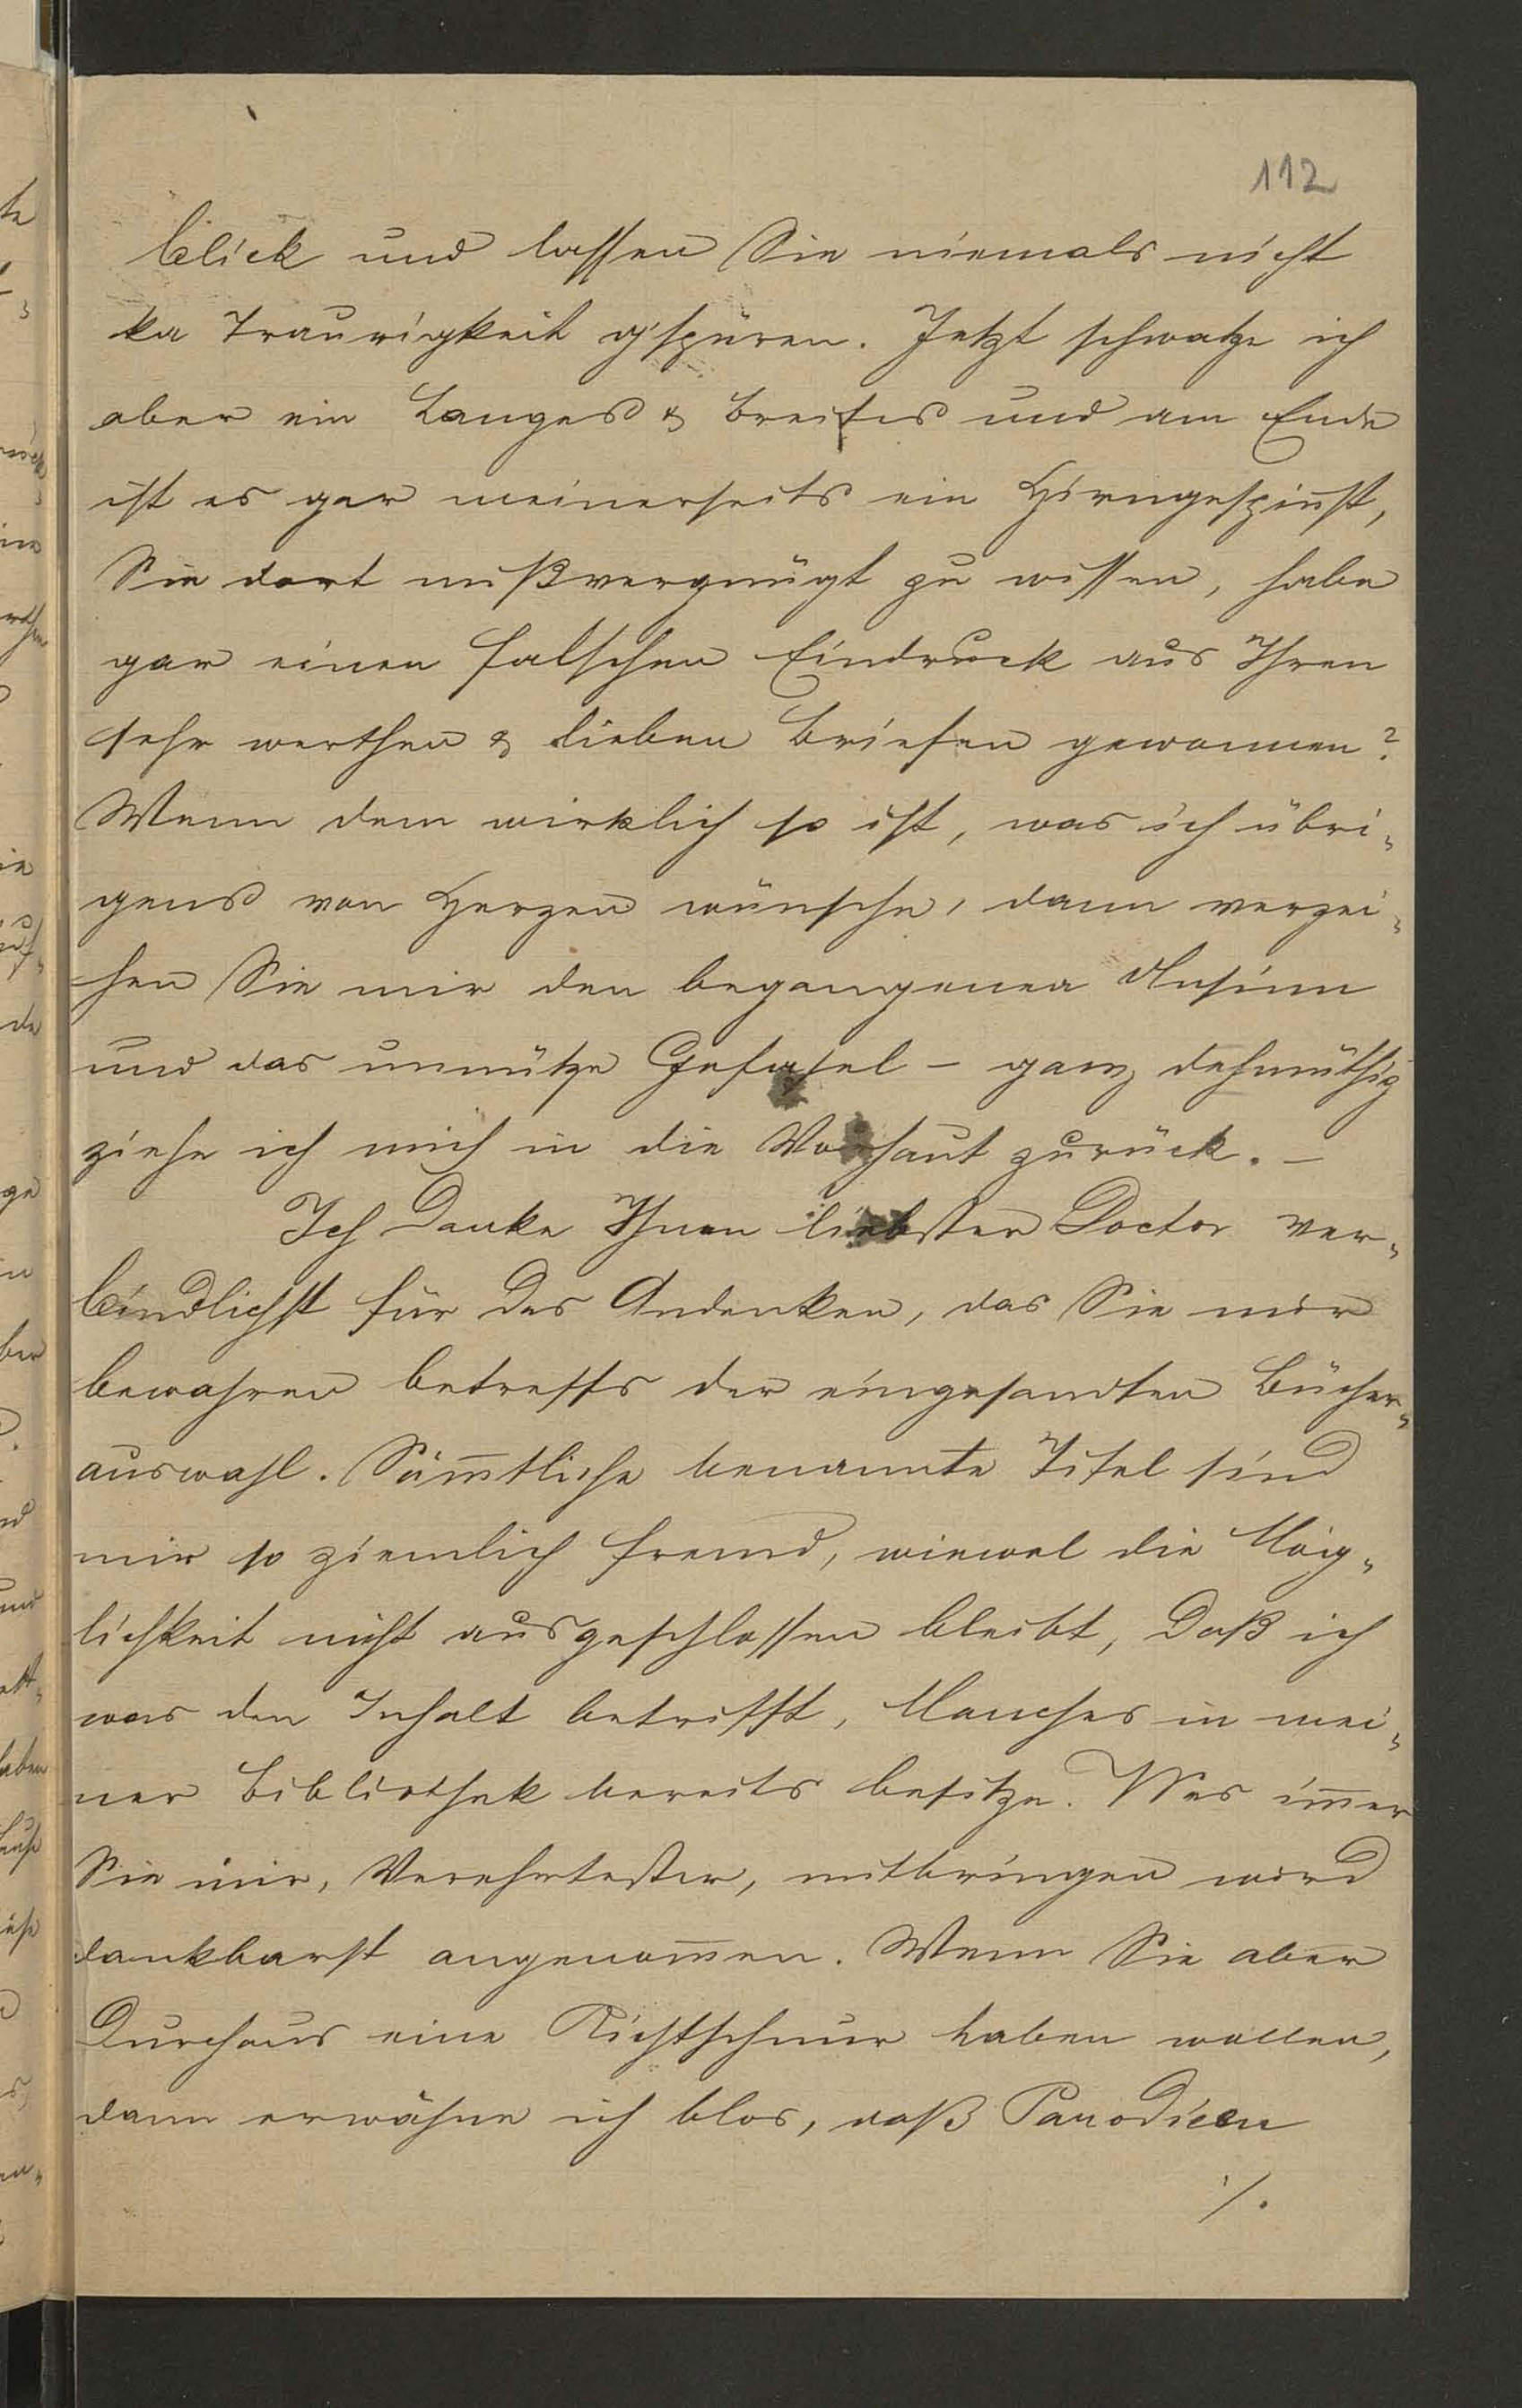 112
blick und lassen Sie niemals nicht
ka Traurigkeit g'spüren. Jetzt schwatze ich
aber ein Langes & Breites und am Ende
ist es gar meinerseits ein Hirngespinst,
Sie dort mißvergnügt zu wissen, habe
gar einen falschen Eindruck aus Ihren
sehr werthen & lieben Briefen gewonnen?
Wenn dem wirklich so ist, was ich übri„
gens von Herzen wünsche, dann verzei„
hen Sie mir den begangenen Unsinn
und das unnütze Gefasel – ganz dehmüthig
ziehe ich mich in die Vorhaut zurück. –
Ich Danke Ihnen liebster Doctor ver„
bindlichst für das Andenken, das Sie mir
bewahren betreffs der eingesandten Bücher„
auswahl. Säm̄tliche benannte Titel sind
mir so ziemlich fremd, wiewol die Mög„
lichkeit nicht ausgeschlossen bleibt, Daß ich
was den Inhalt betrifft, Manches in mei„
ner Bibliothek bereits besitze. Was im̄er
Sie mir, Verehrtester, mitbringen wird
dankbarst angenom̄en. Wenn Sie aber
Durchaus eine Richtschnur haben wollen,
dann erwähne ich blos, daß Parodieen
./.